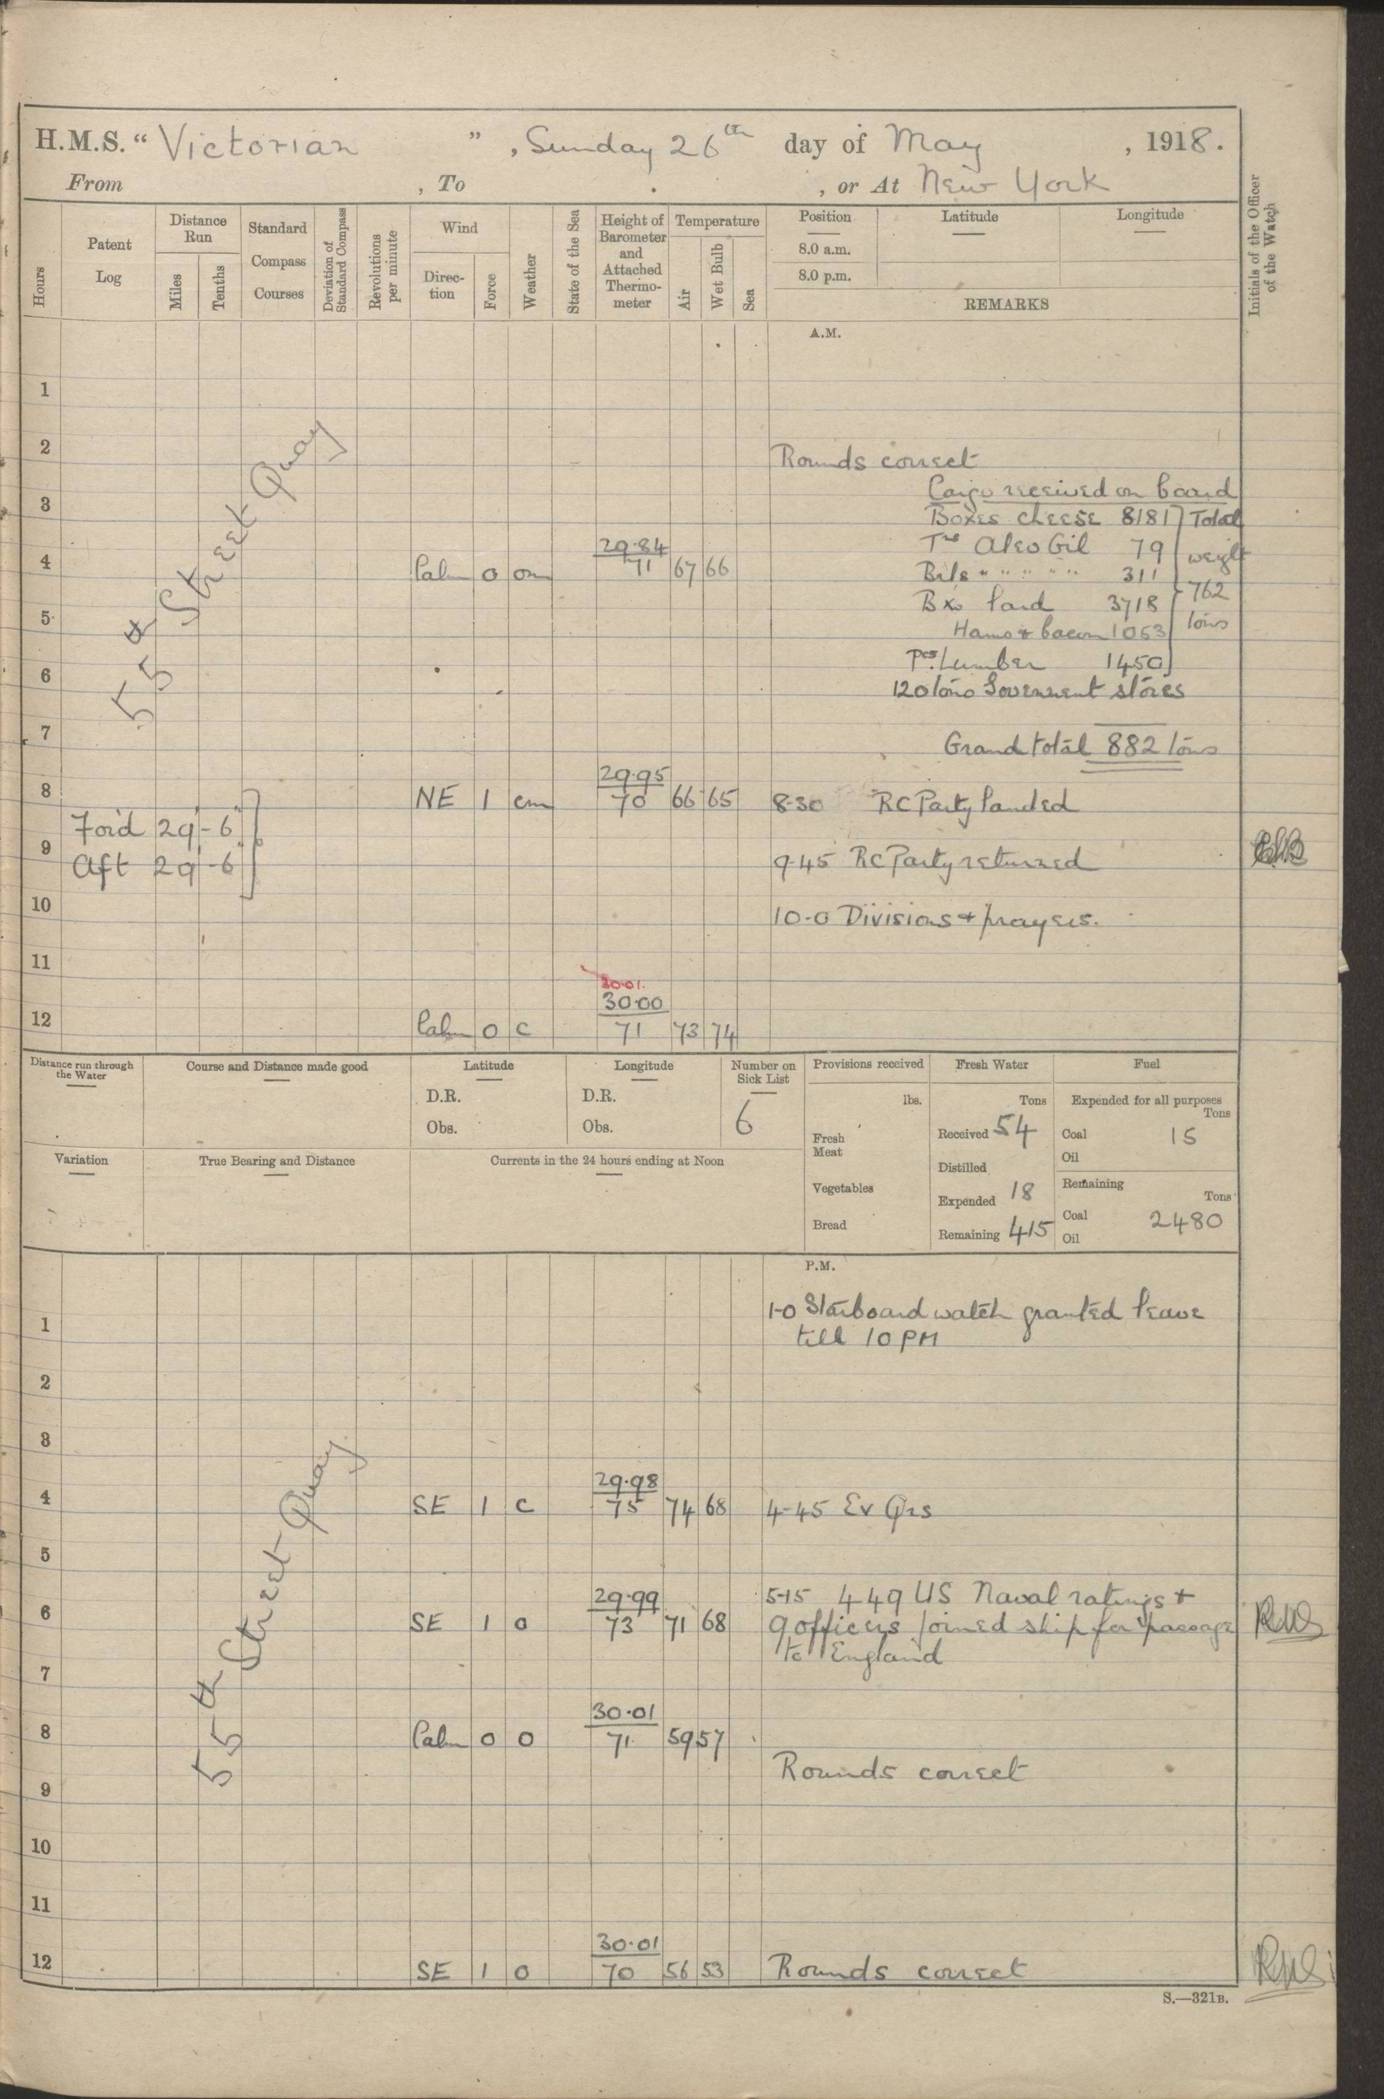 H.M.S. “ Victorian ” , Sunday 26th day of May , 1918.
From , To . , or At New York
Hours
Patent Log
Distance Run
Miles
Tenths
Standard Compass Courses
Deviation of Standard Compass
Revolutions per minute
Wind
Direc-tion
Force
Weather
State of the Sea
Height of Barometer and Attached Thermo-meter
Temperature
Air
Wet Bulb
Sea
Position
Latitude
Longitude
8.0 a.m.
8.0 p.m.
REMARKS
Initials of the Officer of the Watch
A.M.
1
2
Rounds correct
Cargo received on board
3
Boxes cheese 8181 Total
Tcs Oleo Oil 79 weight
29.84
4 Calm 0 om 71 67 66
Brls " " " " " 311
762
Bxs Lard 3718
5 tons
Hams & bacon 1053
Pcs Lumber 1450
6
120 tons Government stores
55th Street Quay
7
Grand total 882 tons
29.95
8 NE 1 cm 70 66 65 8-30 RC Party landed
For'd 29'-6"
9
Aft 29'-6" 9-45 RC Party returned
10
10-0 Divisions & prayers.
11
30.01.
30.00
12 Calm 0 c 71 73 74
Distance run through the Water
Course and Distance made good
Latitude
D.R.
Obs.
Longitude
D.R.
Obs.
Number on Sick List
6
Provisions received
lbs.
Fresh Meat
Vegetables
Bread
Fresh Water
Tons
Received 54
Distilled
Expended 18
Remaining 415
Fuel
Expended for all purposes
Tons
Coal 15
Oil
Remaining
Tons
Coal 2480
Oil
Variation
True Bearing and Distance
Currents in the 24 hours ending at Noon
P.M.
1-0 Starboard watch granted leave
1
till 10 PM
2
3
29.98
4 SE 1 c 75 74 68 4-45 Ev Qrs
5
29.99
5-15 449 US Naval ratings &
6 SE 1 0 73 71 68 9 officers joined ship for passage
to England
7
55th Street Quay
30.01
8 Calm 0 0 71 59 57
Rounds correct
9
10
11
30.01
12 SE 1 0 70 56 53 Rounds correct
S.—321B.